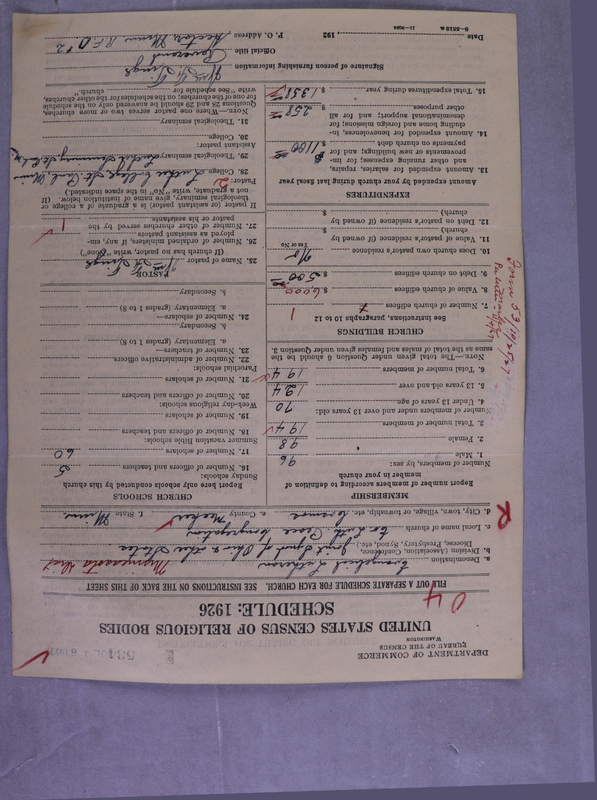 DEPARTMENT OF COMMERCE
BUREAU OF THE CENSUS
WASHINGTON
UNITED STATES CENSUS OF RELIGIOUS BODIES
SCHEDULE: 1926
FILL OUT A SEPARATE SCHEDULE FOR EACH CHURCH. SEE INSTRUCTIONS ON THE BACK OF THIS SHEET
a. Denomination Evangelical Lutheran
b. Division (Association, Conference, Diocese, Presbytery, Synod, etc.) Joint Synod of Ohio & other States
c. Local name of church Ev. Luth. Peace Congregation
d. City, town, village, or township, etc. Cosmos e. County Meeker f. State Minn.
MEMBERSHIP
Report number of members according to definition of member in your church
Number of members, by sex:
1. Male 96
2. Female 98
3. Total number of members 194
Number of members under and over 13 years old:
4. Under 13 years of age 70
5. 13 years old and over 124
6. Total number of members 194
NOTE.—The total given under Question 6 should be the same as the total of males and females given under Question 3.
CHURCH BUILDINGS
See instructions, paragraphs 10 to 12
7. Number of church edifices 1
8. Value of church edifices $ 6000
9. Debt on church edifices $ 500
10. Does church own pastor's residence? No
Yes or No
11. Value of pastor's residence (if owned by church) $
12. Debt on pastor's residence (if owned by church) $
EXPENDITURES
Amount expended by your church during last fiscal year
13. Amount expended for salaries, repairs, and other running expenses; for improvements or new buildings; and for payments on church debt $ 1100
14. Amount expended for benevolences, including home and foreign missions; for denominational support; and for all other purposes $ 258
15. Total expenditures during year $ 1358
CHURCH SCHOOLS
Report here only schools conducted by this church
Sunday schools:
16. Number of officers and teachers 5
17. Number of scholars 60
Summer vacation Bible schools:
18. Number of officers and teachers
19. Number of scholars
Week-day religious schools:
20. Number of officers and teachers
21. Number of scholars
Parochial schools:
22. Number of administrative officers
23. Number of teachers—
a. Elementary (grades 1 to 8)
b. Secondary
24. Number of scholars—
a. Elementary (grades 1 to 8)
b. Secondary
PASTOR
25. Name of pastor
(If church has no pastor, write "none")
26. Number of ordained ministers, if any, employed as assistant pastors
27. Number of other churches served by the pastor or his assistants 1
If pastor (or assistant pastor) is a graduate of a college or theological seminary, give name of institution below. (If not a graduate, write "No" in the space indicated.)
Pastor:
28. College Luther College, St. Paul, Minn
29. Theological seminary Luther Seminary, St. Paul
Assistant pastor:
30. College
31. Theological seminary
NOTE.—Where one pastor serves two or more churches, Questions 25 and 29 should be answered only on the schedule for one of the churches; on the schedules for the other churches, write "See schedule for church."
Signature of person furnishing information
Official title Reverend
P. O. Address Hector, Minn. R.F.D. #2
Date 192